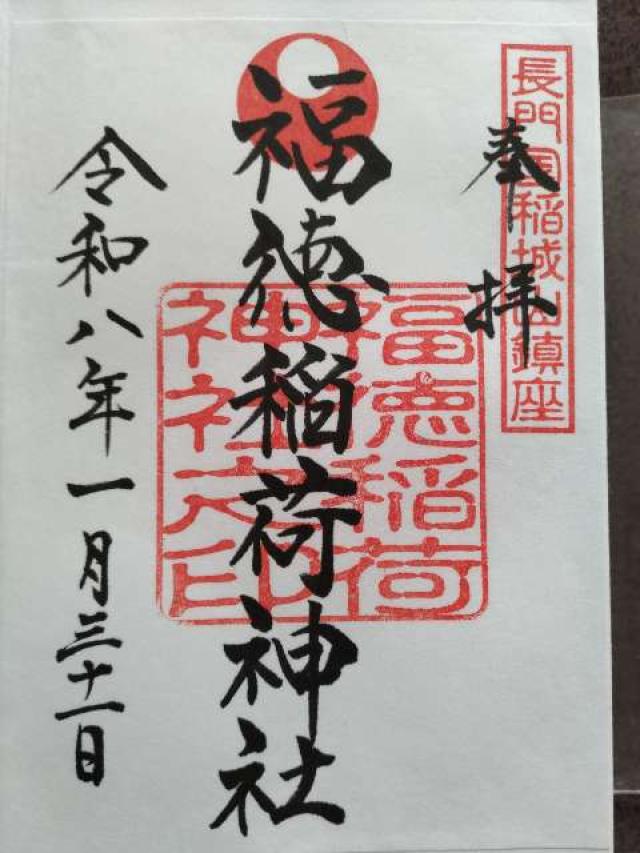 長門国稲城山鎮座
奉拝
福徳稲荷神社
福徳稲荷
神社之印
令和八年一月三十一日